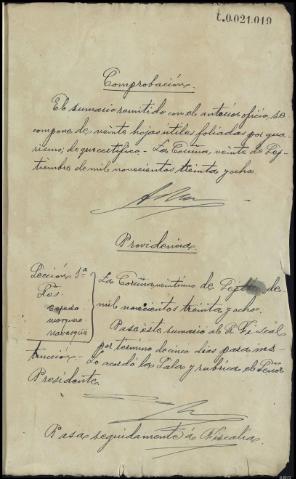 t.0.021.019
Comprobación.
El sumario remitido con el anterior oficio, se
compone de veinte hojas útiles foliadas por gua-
rismo; de que certifico.- La Coruña, veinte de Sep-
tiembre de mil novecientos treinta y ocho.
Providencia
Sección 1ª
La Coruña veintiuno de de
Sres.
mil novecientos treinta y ocho.
Cepeda
Marquez
Pase este sumario al Sr. Fiscal
por termino de cinco dias para ins-
trucción. Lo acordó la Sala y rubrica el Señor
Presidente.
Pasa seguidamente á Fiscalia.